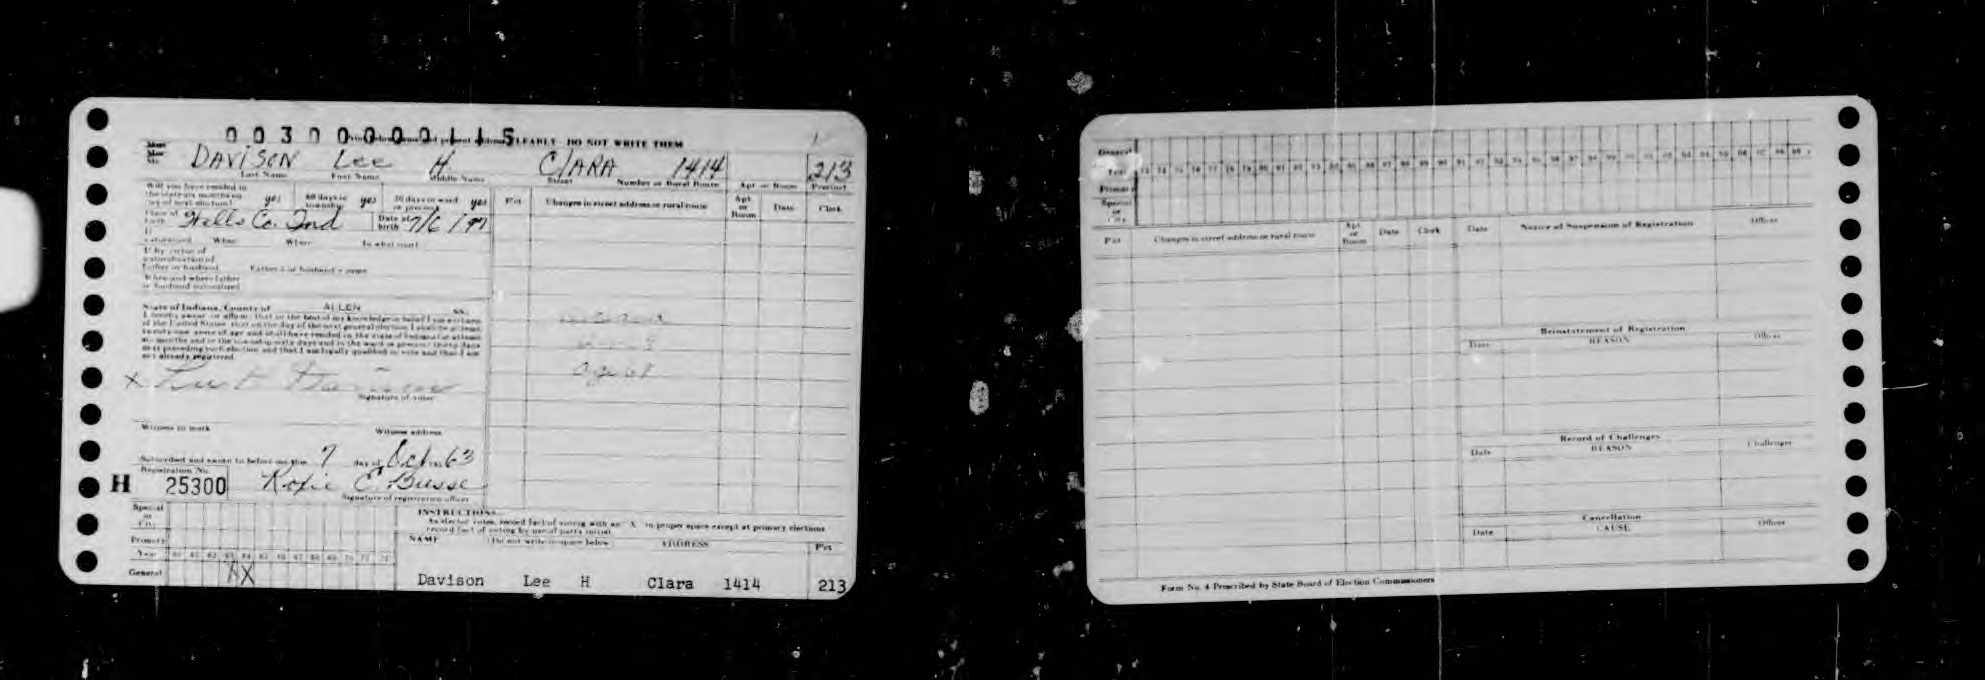 00300000115 LEARLY DO NOT WRITE THEM
DAVISON Lee H CLARA 1414 213
Last Name First Name Middle Name Street Number or Rural Route Apt or Room Precinct
Will you have resided in
the state six months on yes 60 days in township yes 30 days in ward or precinct yes
Place of birth Wells Co. Ind Date of birth 7/6/97
If naturalized When Where In what court
If by virtue of
naturalization of
father or husband Father's or husband's name
When and where father
or husband naturalized
State of Indiana, County of ALLEN ss.
I hereby swear or affirm that to the best of my knowledge or belief I am a citizen
of the United States that on the day of the next general election I shall be at least
twenty-one years of age and shall have resided in the state of Indiana for at least
six months and in the township sixty days and in the ward or precinct thirty days
next preceding such election and that I am legally qualified to vote and that I am
not already registered.
X
Signature of voter
Witness to mark Witness address
Subscribed and sworn to before me this 7 day of Oct 1963
Registration No.
H 25300 Roxie E. Busse
Signature of registration officer
Pct Changes in street address or rural route Apt or Room Date Clerk
Age 68
Special
or
City
Primary
Year 60 61 62 63 64 65 66 67 68 69 70 71 72
General X X
INSTRUCTIONS
As elector votes, record fact of voting with an "X" in proper space except at primary elections
record fact of voting by use of party initial
NAME (Do not write in space below) ADDRESS Pct
Davison Lee H Clara 1414 213
General
Year 73 74 75 76 77 78 79 80 81 82 83 84 85 86 87 88 89 90 91 92
Primary
Special
or
City
Pct Changes in street address or rural route Apt or Room Date Clerk
Date Notice of Suspension of Registration Officer
Reinstatement of Registration
Date REASON Officer
Record of Challenges
Date REASON Challenger
Cancellation
Date CAUSE Officer
Form No. 4 Prescribed by State Board of Election Commissioners